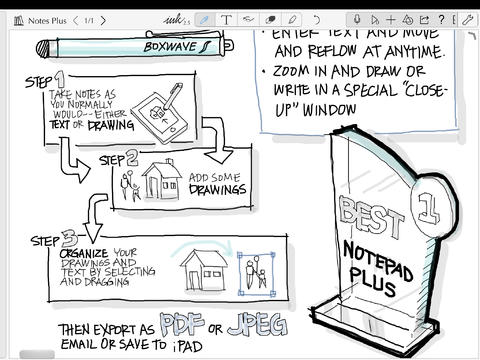 Notes Plus
1/1
ink 2.5
T
BOXWAVE
• ENTER TEXT AND MOVE
AND REFLOW AT ANYTIME.
• ZOOM IN AND DRAW OR
WRITE IN A SPECIAL "CLOSE-
UP" WINDOW
STEP 1
TAKE NOTES AS
YOU NORMALLY
WOULD-- EITHER
TEXT OR DRAWING
STEP 2
ADD SOME
DRAWINGS
STEP 3
ORGANIZE YOUR
DRAWINGS AND
TEXT BY SELECTING
AND DRAGGING
THEN EXPORT AS PDF OR JPEG
EMAIL OR SAVE TO iPAD
1
BEST
NOTEPAD
PLUS